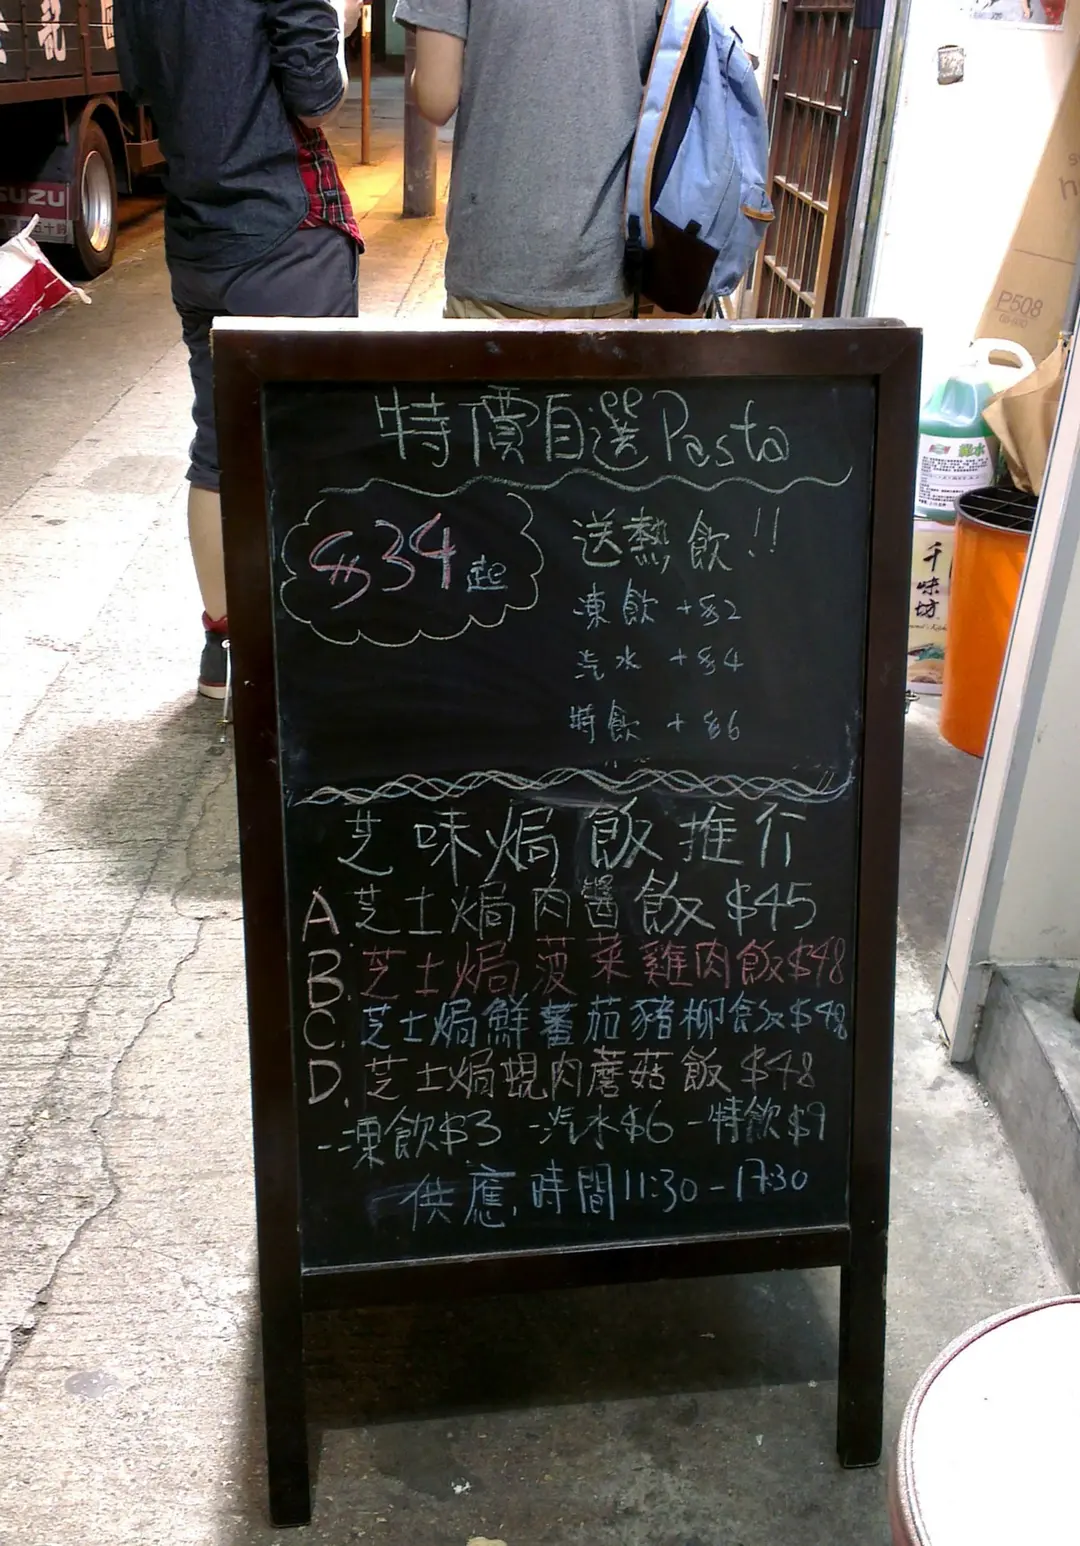 特價自選Pasta
$34起
送熱飲!!
凍飲 +$2
汽水 +$4
特飲 +$6
芝味焗飯推介
A 芝士焗肉醬飯 $45
B. 芝士焗菠菜雞肉飯$48
C. 芝士焗鮮蕃茄豬柳飯$48
D. 芝士焗蜆肉蘑菇飯 $48
-凍飲$3 -汽水$6 -特飲$9
供應時間11:30-17:30
SUZU
P508
千味坊